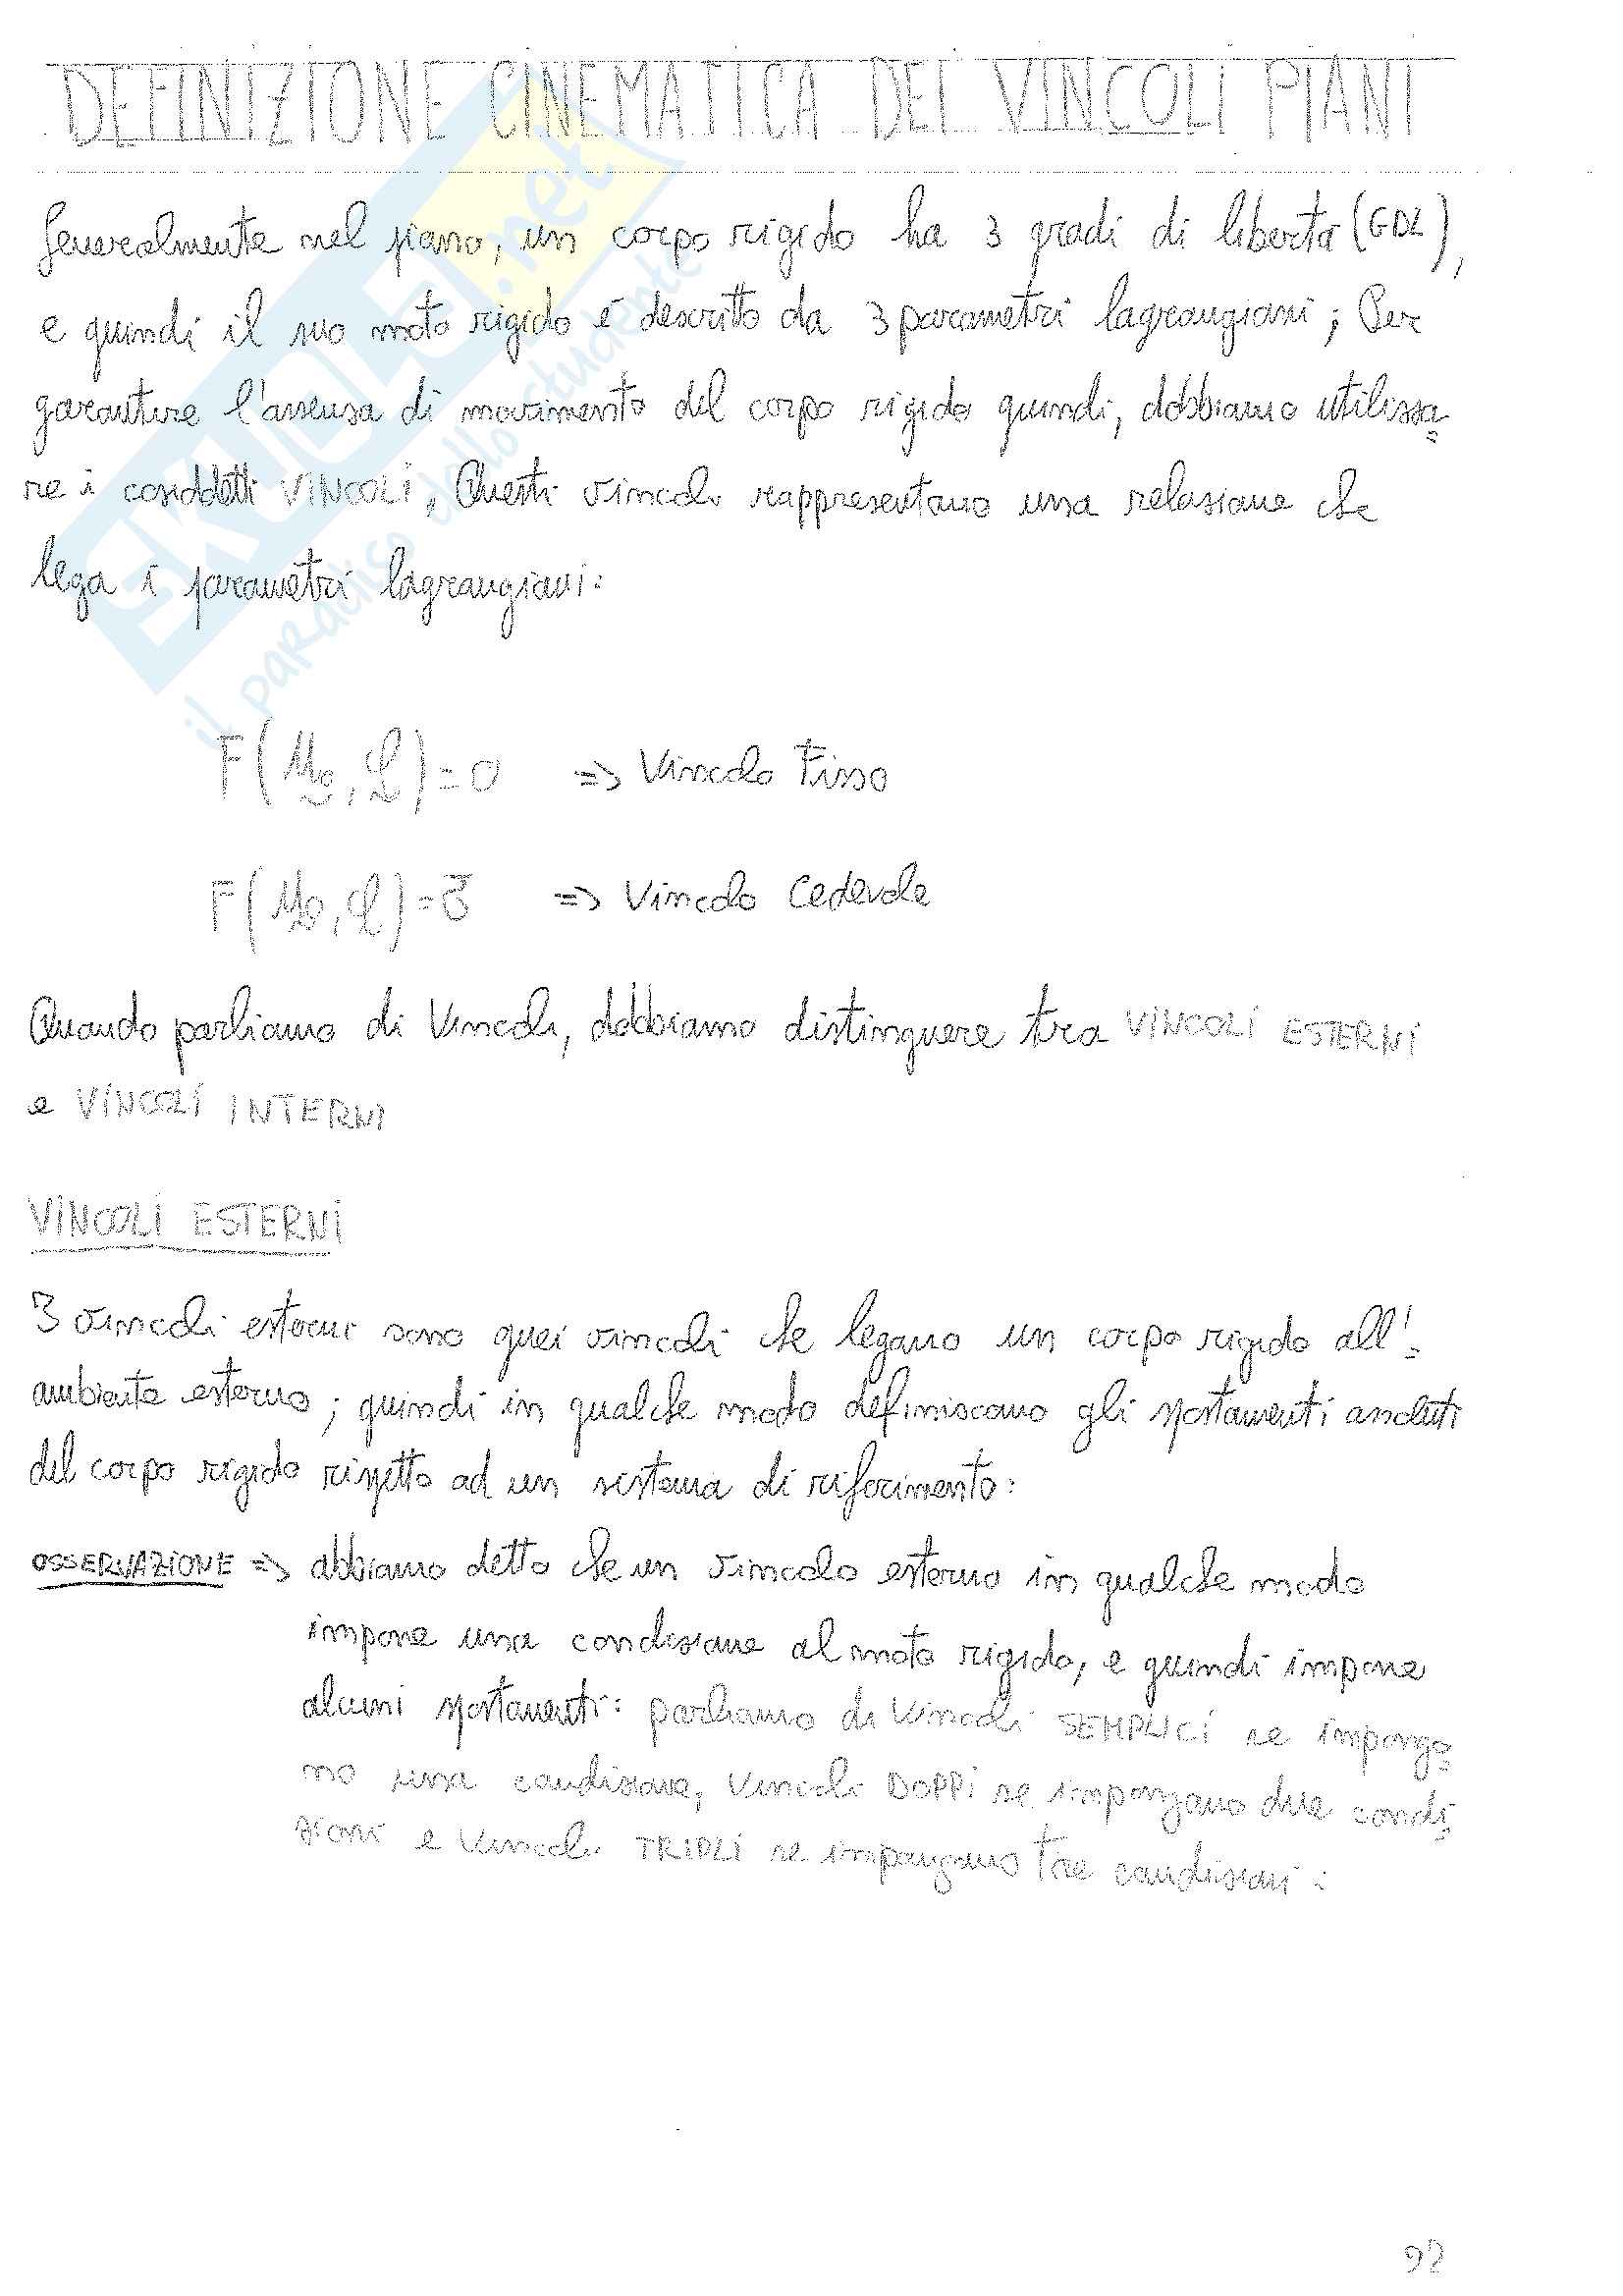 DEFINIZIONE CINEMATICA DEI VINCOLI PIANI
Generalmente nel piano, un corpo rigido ha 3 gradi di libertà (GDL),
e quindi il suo moto rigido é descritto da 3 parametri lagrangiani; Per
garantire l'assenza di movimento del corpo rigido quindi, dobbiamo utilizza
re i cosiddetti VINCOLI. Questi vincoli rappresentano una relazione che
lega i parametri lagrangiani:
F(u₀, φ)=0 => Vincolo Fisso
F(u₀, φ)=δ̄ => Vincolo Cedevole
Quando parliamo di Vincoli, dobbiamo distinguere tra VINCOLI ESTERNI
e VINCOLI INTERNI
VINCOLI ESTERNI
I vincoli esterni sono quei vincoli che legano un corpo rigido all'
ambiente esterno; quindi in qualche modo definiscono gli spostamenti assoluti
del corpo rigido rispetto ad un sistema di riferimento:
OSSERVAZIONE => abbiamo detto che un vincolo esterno in qualche modo
impone una condizione al moto rigido, e quindi impone
alcuni spostamenti: parliamo di Vincoli SEMPLICI se impongo
no una condizione, Vincoli DOPPI se impongono due condi
zioni e Vincoli TRIPLI se impongono tre condizioni:
92
SKUOLA.net
il paradiso dello studente